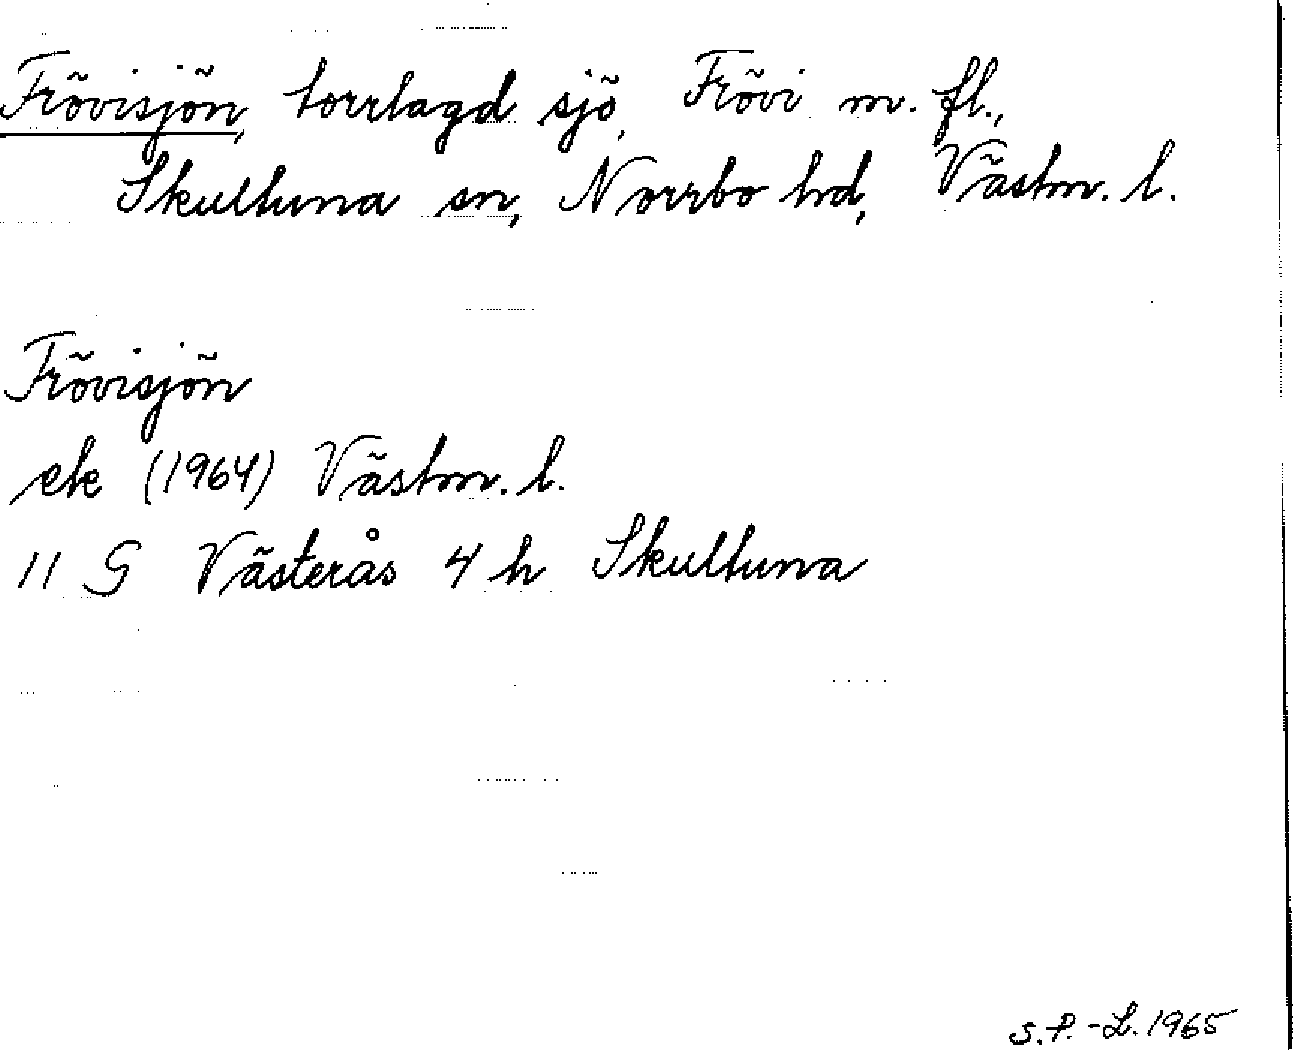 Frövisjön, torrlagd sjö, Frövi m. fl.,
Skultuna sn, Norrbo hd, Västm. l.
Frövisjön
ek (1964) Västm. l.
11 G Västerås 4 h Skultuna
S.P.-L. 1965